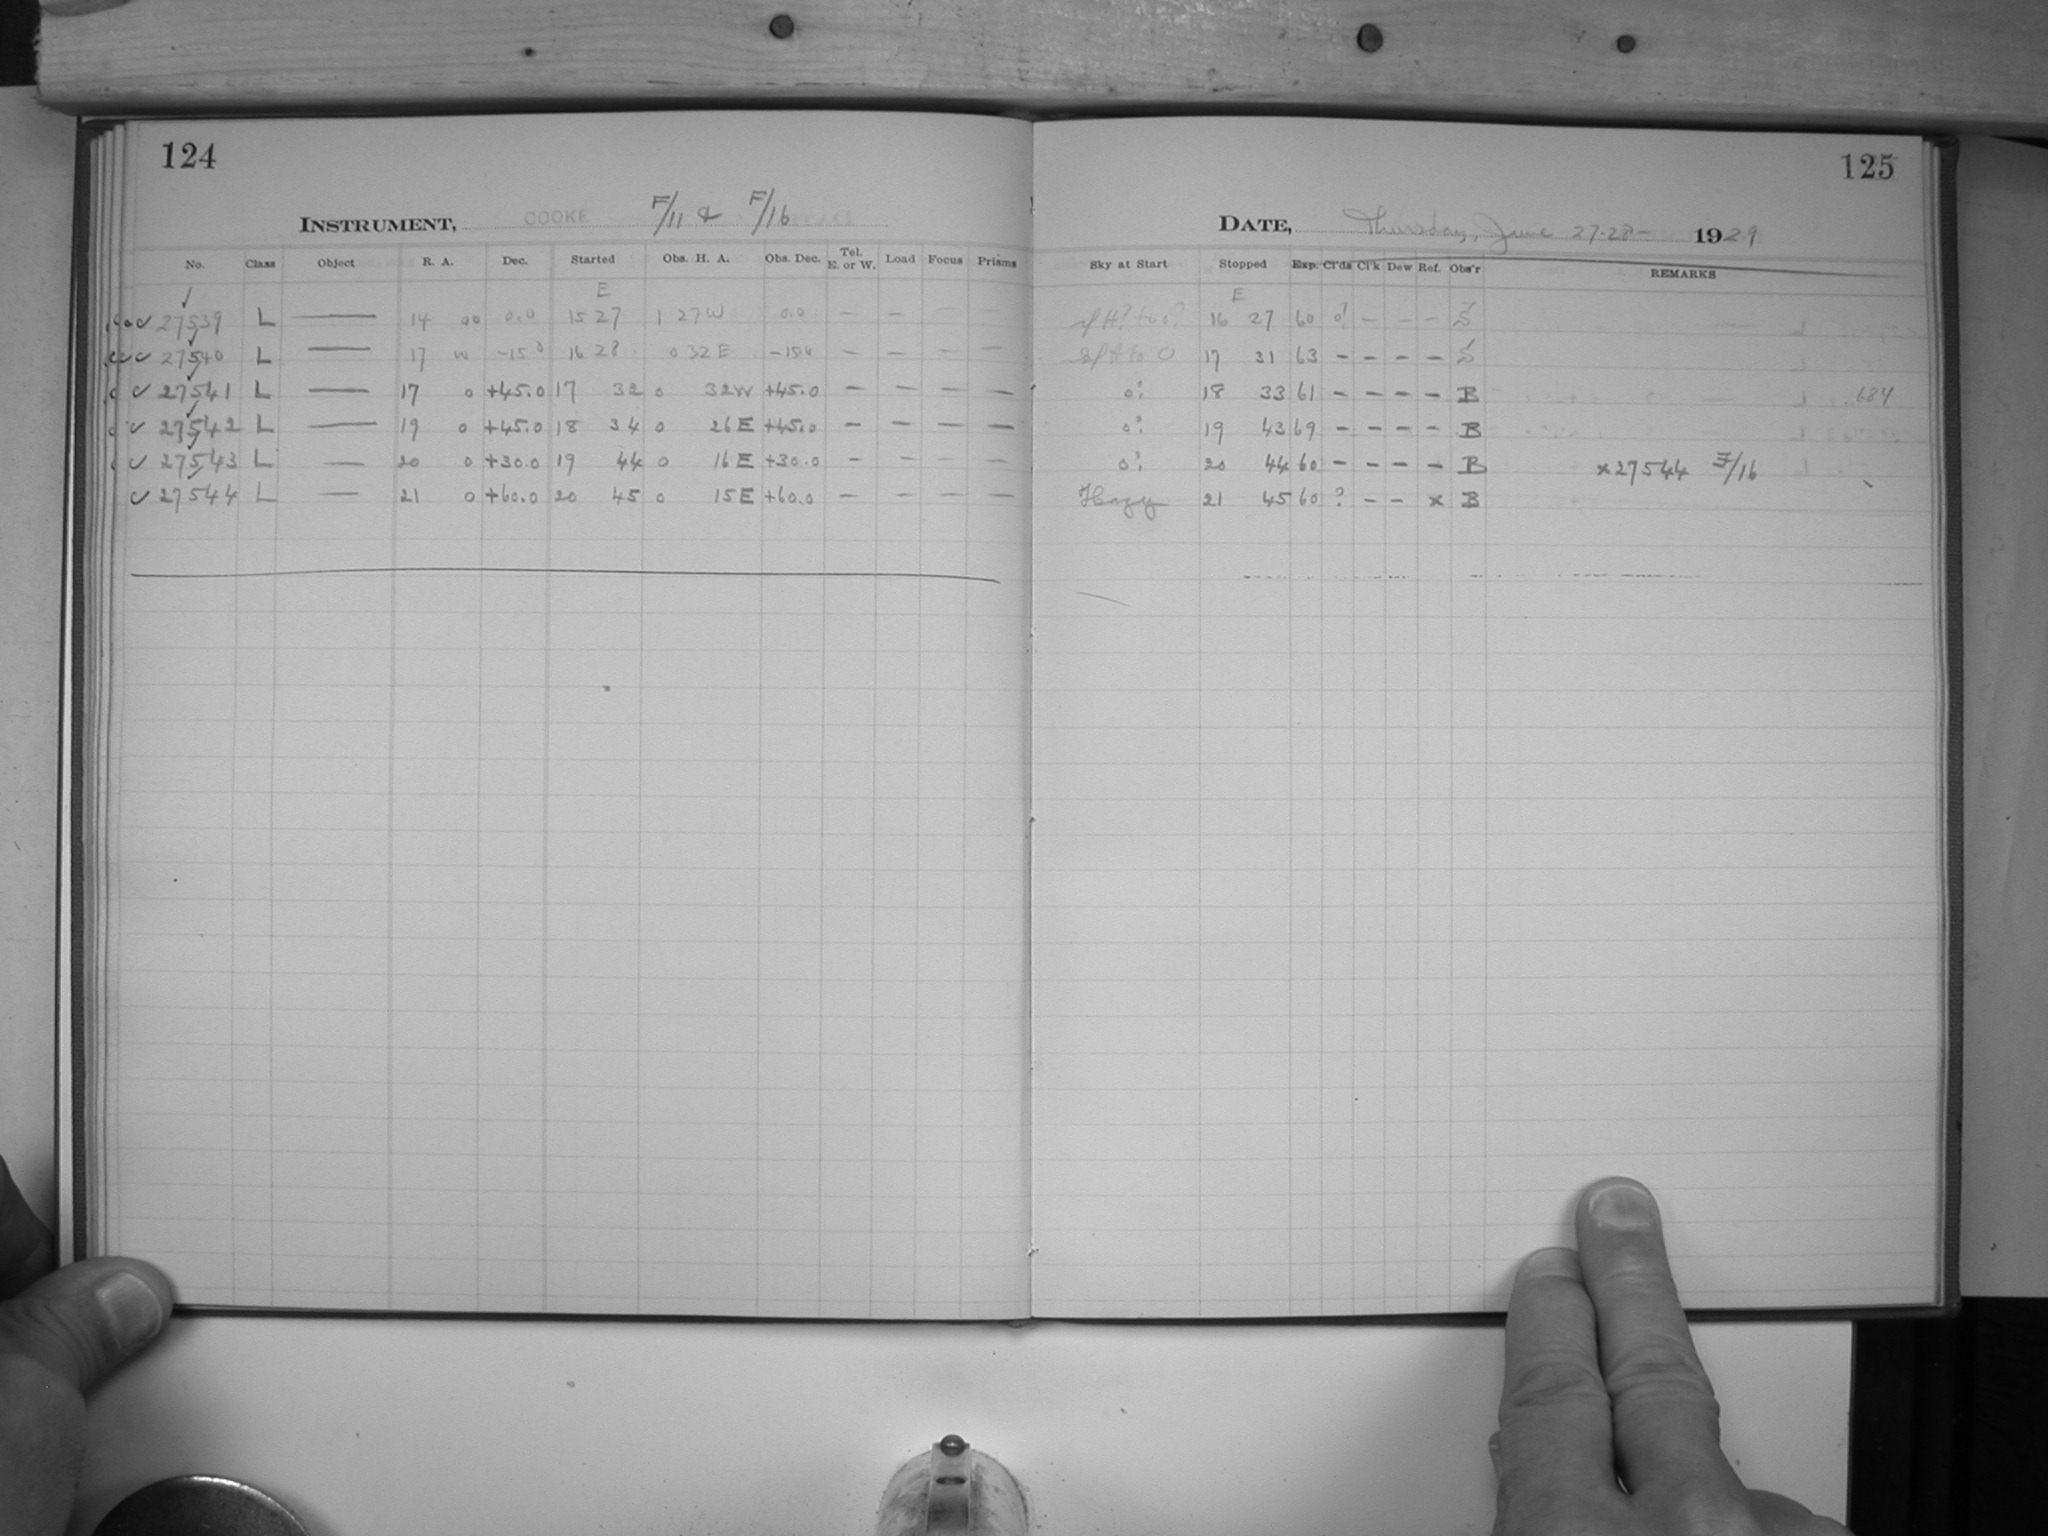 124
INSTRUMENT, COOKE F/11 & F/16
No. Class Object R. A. Dec. Started Obs. H. A. Obs. Dec. Tel. E. or W. Load Focus Prisms
E
27539 L — 14 00 0.0 15 27 1 27 W 0.0 — — — —
27540 L — 17 16 28 0 32 E — — — —
27541 L — 17 0 +45.0 17 32 0 32 W +45.0 — — — —
27542 L — 19 0 +45.0 18 34 0 26 E +45.0 — — — —
27543 L — 20 0 +30.0 19 44 0 16 E +30.0 — — — —
27544 L — 21 0 +60.0 20 45 0 15 E +60.0 — — — —
125
DATE, Thursday, June 27-28- 1929
Sky at Start Stopped Exp. Cl'ds Cl'k Dew Ref. Obs'r REMARKS
E
16 27 60 0? — — — S
17 31 63 — — — — S
0? 18 33 61 — — — — B .684
0? 19 43 69 — — — — B
0? 20 44 60 — — — — B x27544 F/16
Hazy 21 45 60 ? — — x B